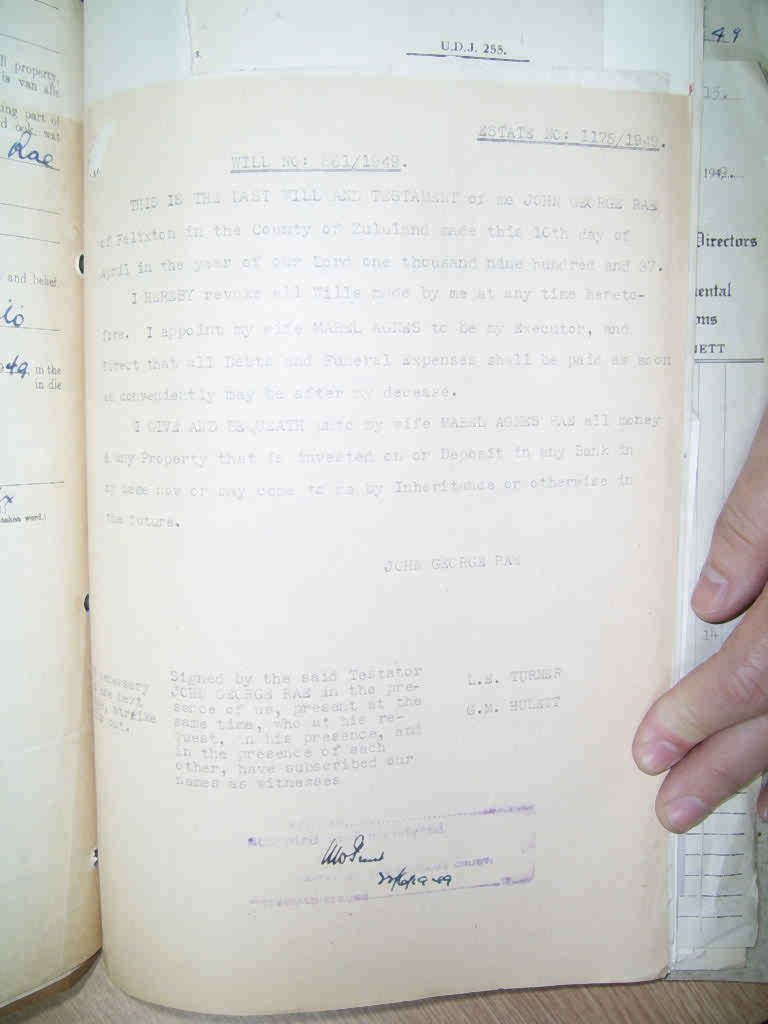 U.D.J. 255.
ESTATE NO: 1175/1949.
WILL NO: 861/1949.
THIS IS THE LAST WILL AND TESTAMENT of me JOHN GEORGE RAE
of Felixton in the County of Zululand made this 10th day of
April in the year of our Lord one thousand nine hundred and 37.
I HEREBY revoke all Wills made by me at any time hereto-
fore. I appoint my wife MABEL AGNES to be my Executor, and
direct that all Debts and Funeral Expenses shall be paid as soon
as conveniently may be after my decease.
I GIVE AND BEQUEATH unto my wife MABEL AGNES RAE all money
& any Property that is invested on or Deposit in any Bank in
my name now or may come to me by Inheritance or otherwise in
the future.
JOHN GEORGE RAE
Signed by the said Testator
JOHN GEORGE RAE in the pre-
sence of us, present at the
same time, who at his re-
quest, in his presence, and
in the presence of each
other, have subscribed our
names as witnesses
L.E. TURNER
G.M. HULETT
property,
is van alle
ing part of
ook wat
Rae
and belief
49 in the
in die
strike
out.
49
15.
194
Directors
ental
ns
ETT
14.